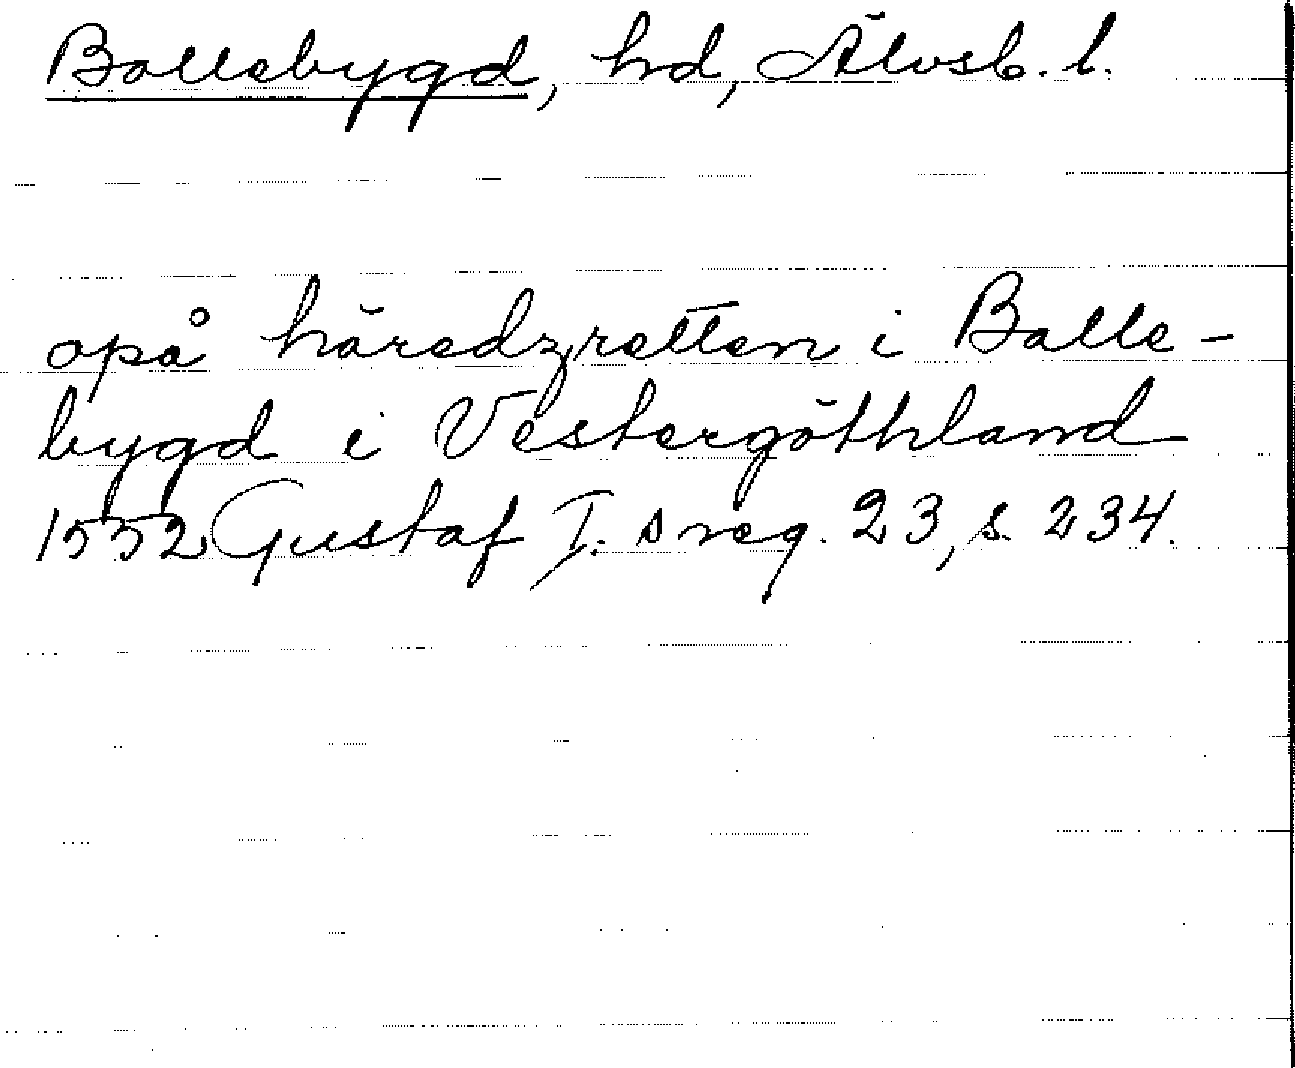 Bollebygd, hd, Älvsb. l.
opå häredzretten i Balle-
bygd i Vestergöthland
1552 Gustaf I. s reg. 23, s. 234.